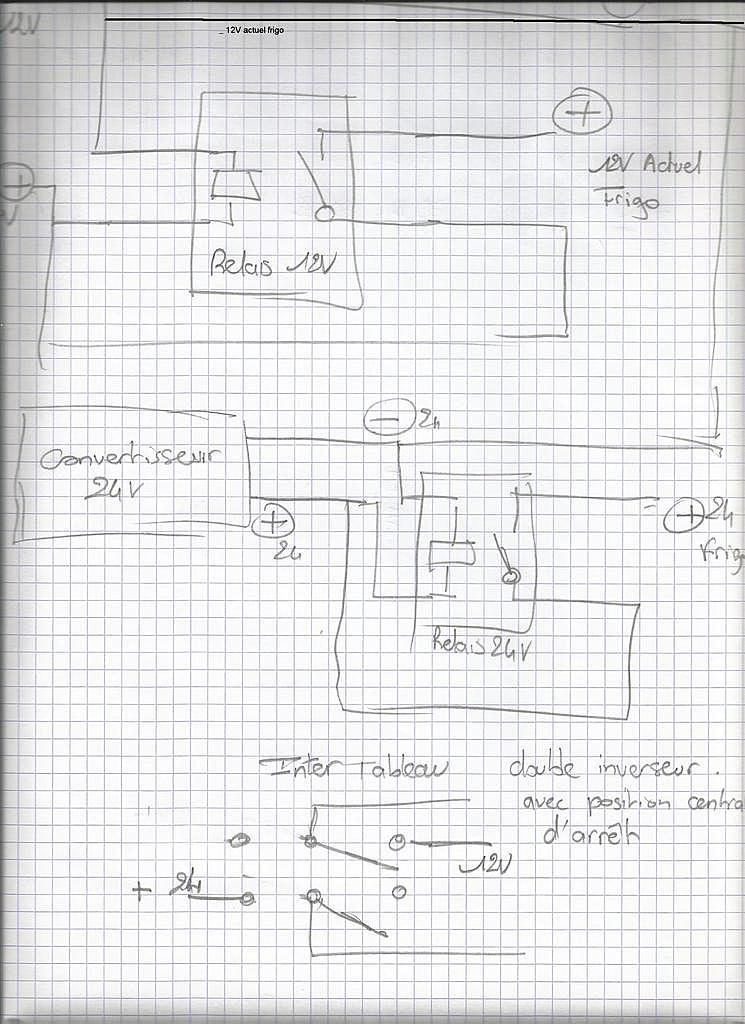 12V
_ 12V actuel frigo
+
12V Actuel
Frigo
+
V
Relais 12V
- 24
Convertisseur
24V
+
24
+ 24
Frig
Relais 24V
Inter Tableau
double inverseur.
avec position centra
d'arrêt
12V
+ 24